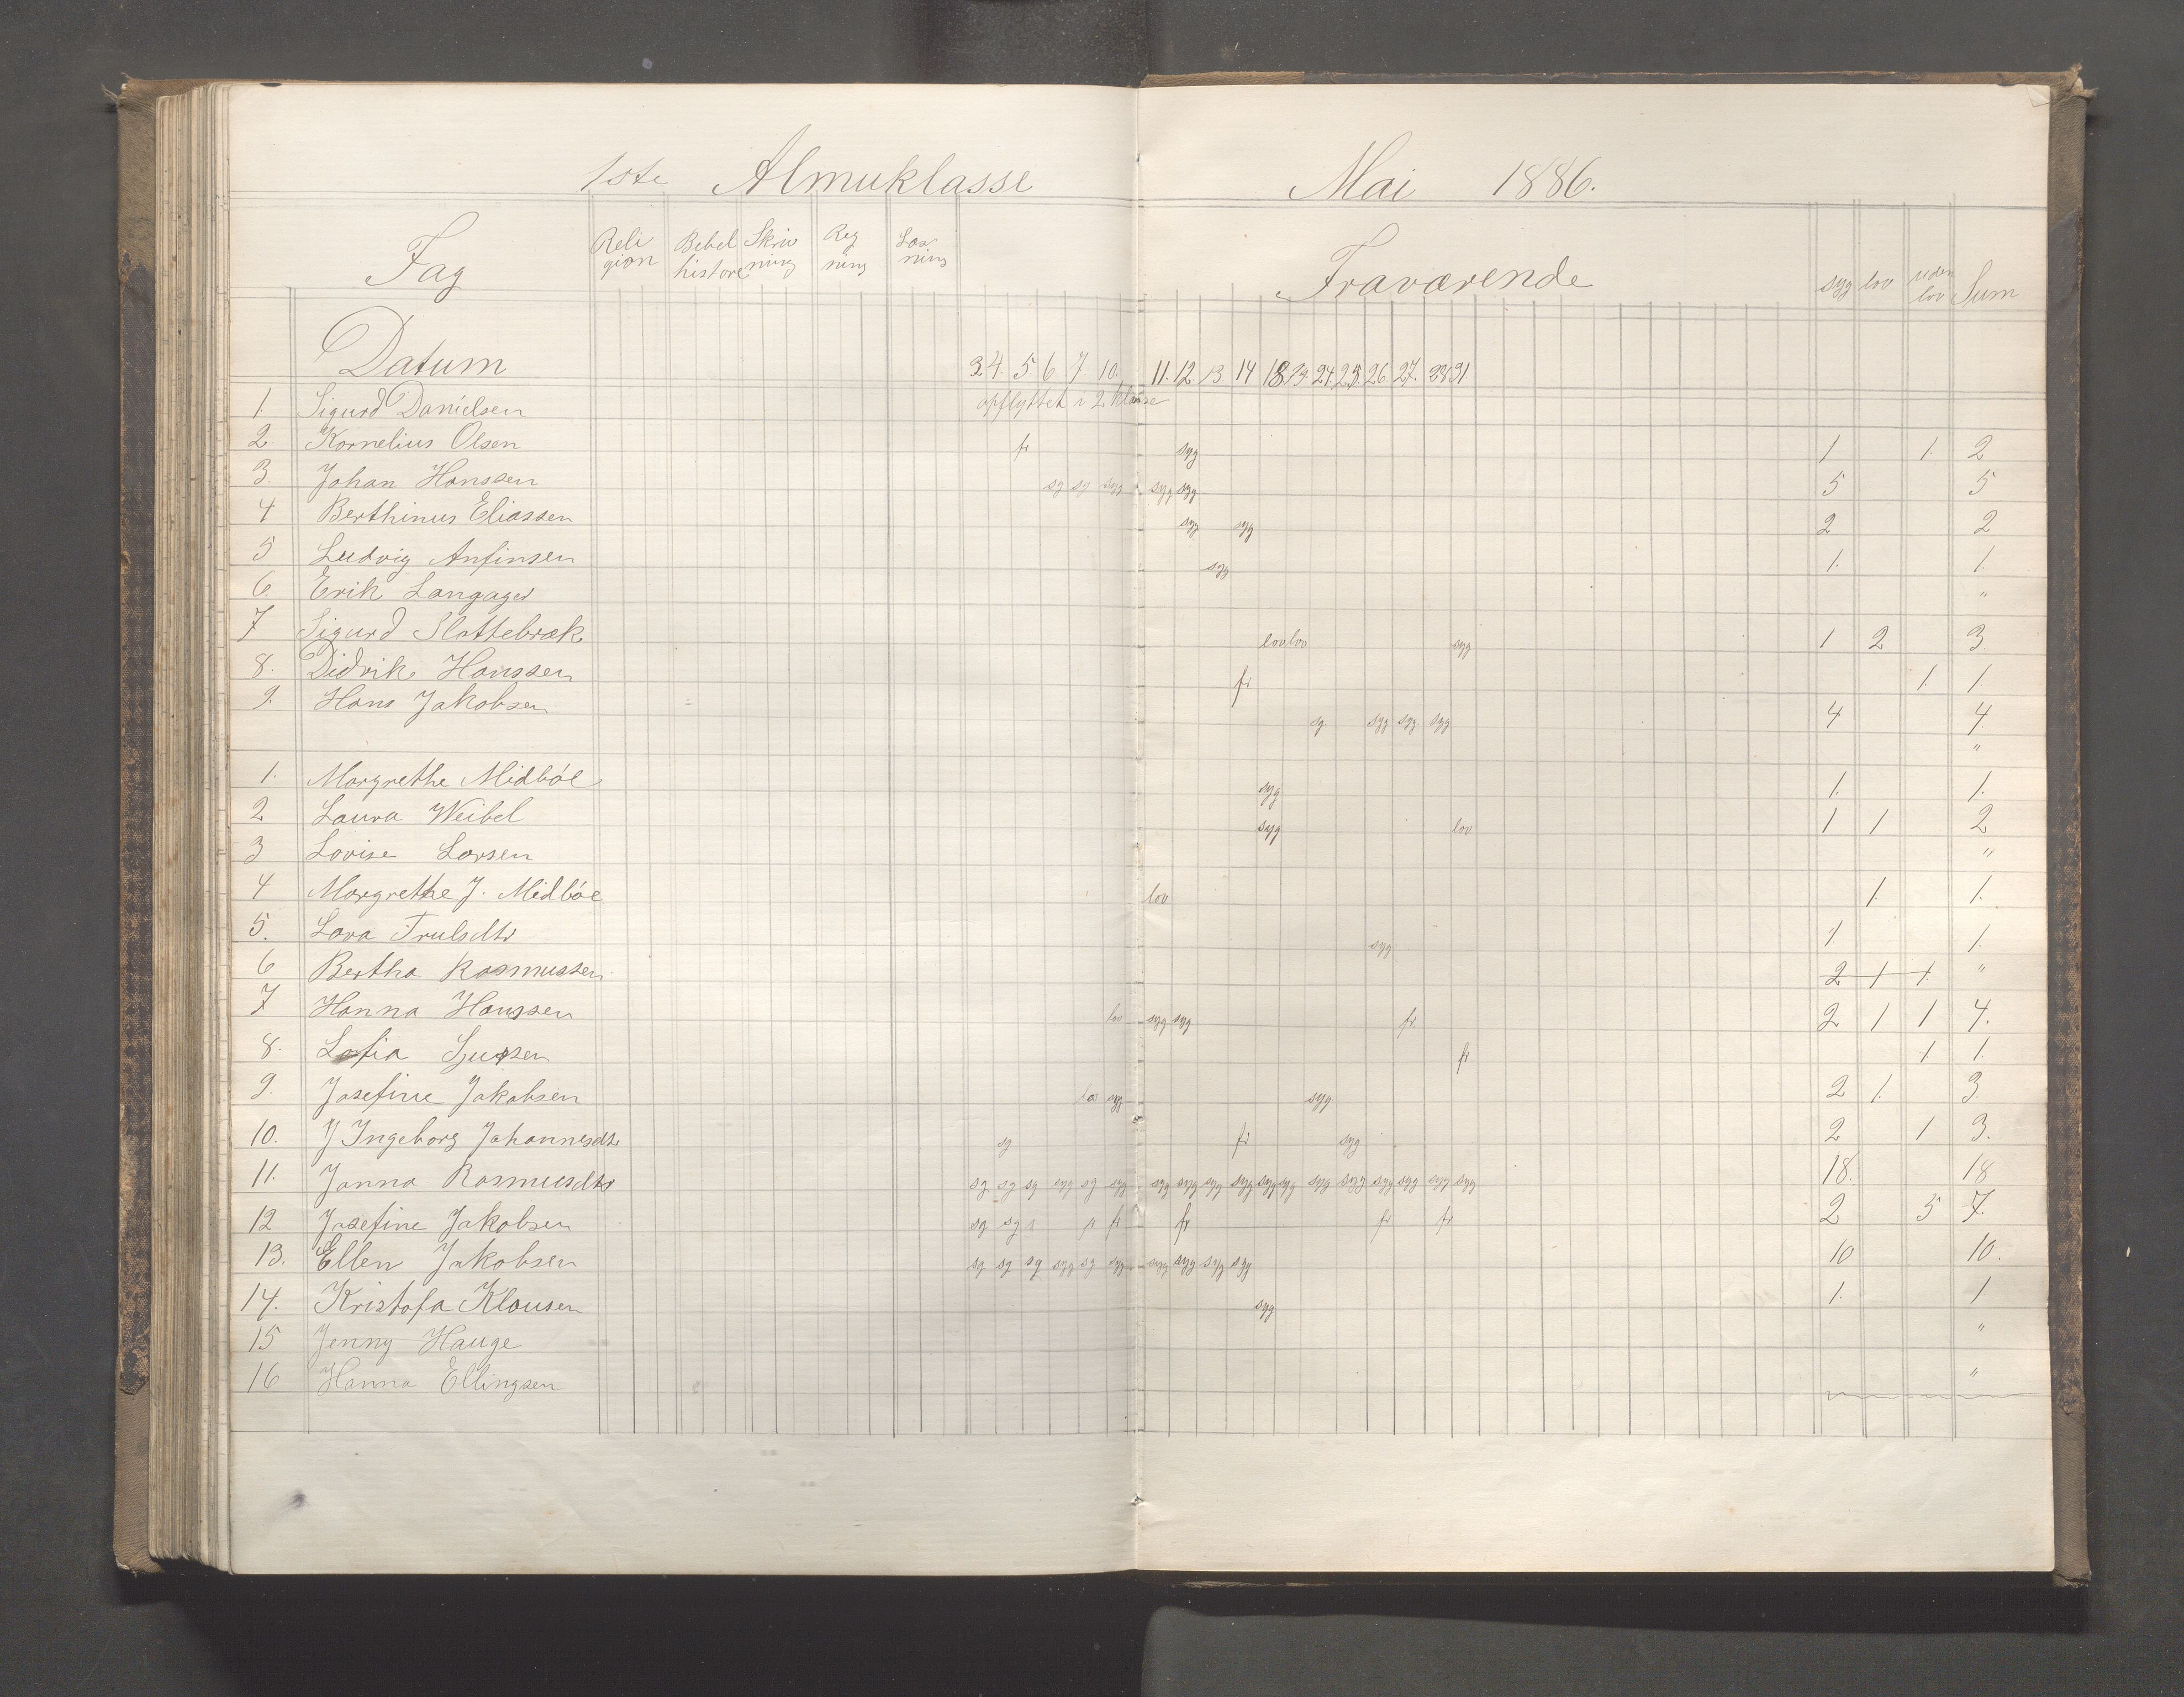 1ste Almuklasse Mai 1886.
Fag Reli gion Bibel historie Skriv ning Reg ning Læs ning Fraværende syg lov uden lov Sum
Datum 3 4. 5 6 7. 10. 11. 12 13. 14 18 19. 24. 25. 26. 27. 28 31
1. Sigurd Danielsen opflyttet i 2 klasse
2. Kornelius Olsen fr syg 1 1. 2
3. Johan Hanssen sg sg syg syg syg 5 5
4 Berthinus Eliassen syg syg 2 2
5 Ludvig Anfinsen syg 1. 1.
6. Erik Langager "
7 Sigurd Slottebræk lov lov syg 1 2 3.
8. Didrik Hanssen fr 1. 1
9. Hans Jakobsen sg syg syg syg 4 4
"
1. Margrethe Midböe syg 1. 1.
2 Laura Weibel syg lov 1 1 2
3 Lovise Larsen "
4 Margrethe J. Midböe lov 1. 1.
5. Lava Trulsdtr syg 1 1.
6 Bertha Rasmussen 2 1 1. "
7 Hanna Hanssen lov syg syg fr 2 1 1 4.
8. Sofia Sjursen fr 1. 1.
9. Josefine Jakobsen lov syg syg. 2 1. 3
10. J Ingeborg Johannesdtr sg fr syg 2 1 3.
11. Janna Rasmusdtr sg sg sg syg sg syg syg syg syg syg syg syg syg syg syg syg syg syg 18. 18
12 Josefine Jakobsen sg sg fr fr fr fr 2 5 7.
13. Ellen Jakobsen sg sg sg syg sg syg syg syg syg syg 10 10.
14. Kristofa Klausen syg 1. 1
15 Jenny Hauge "
16 Hanna Ellingsen "